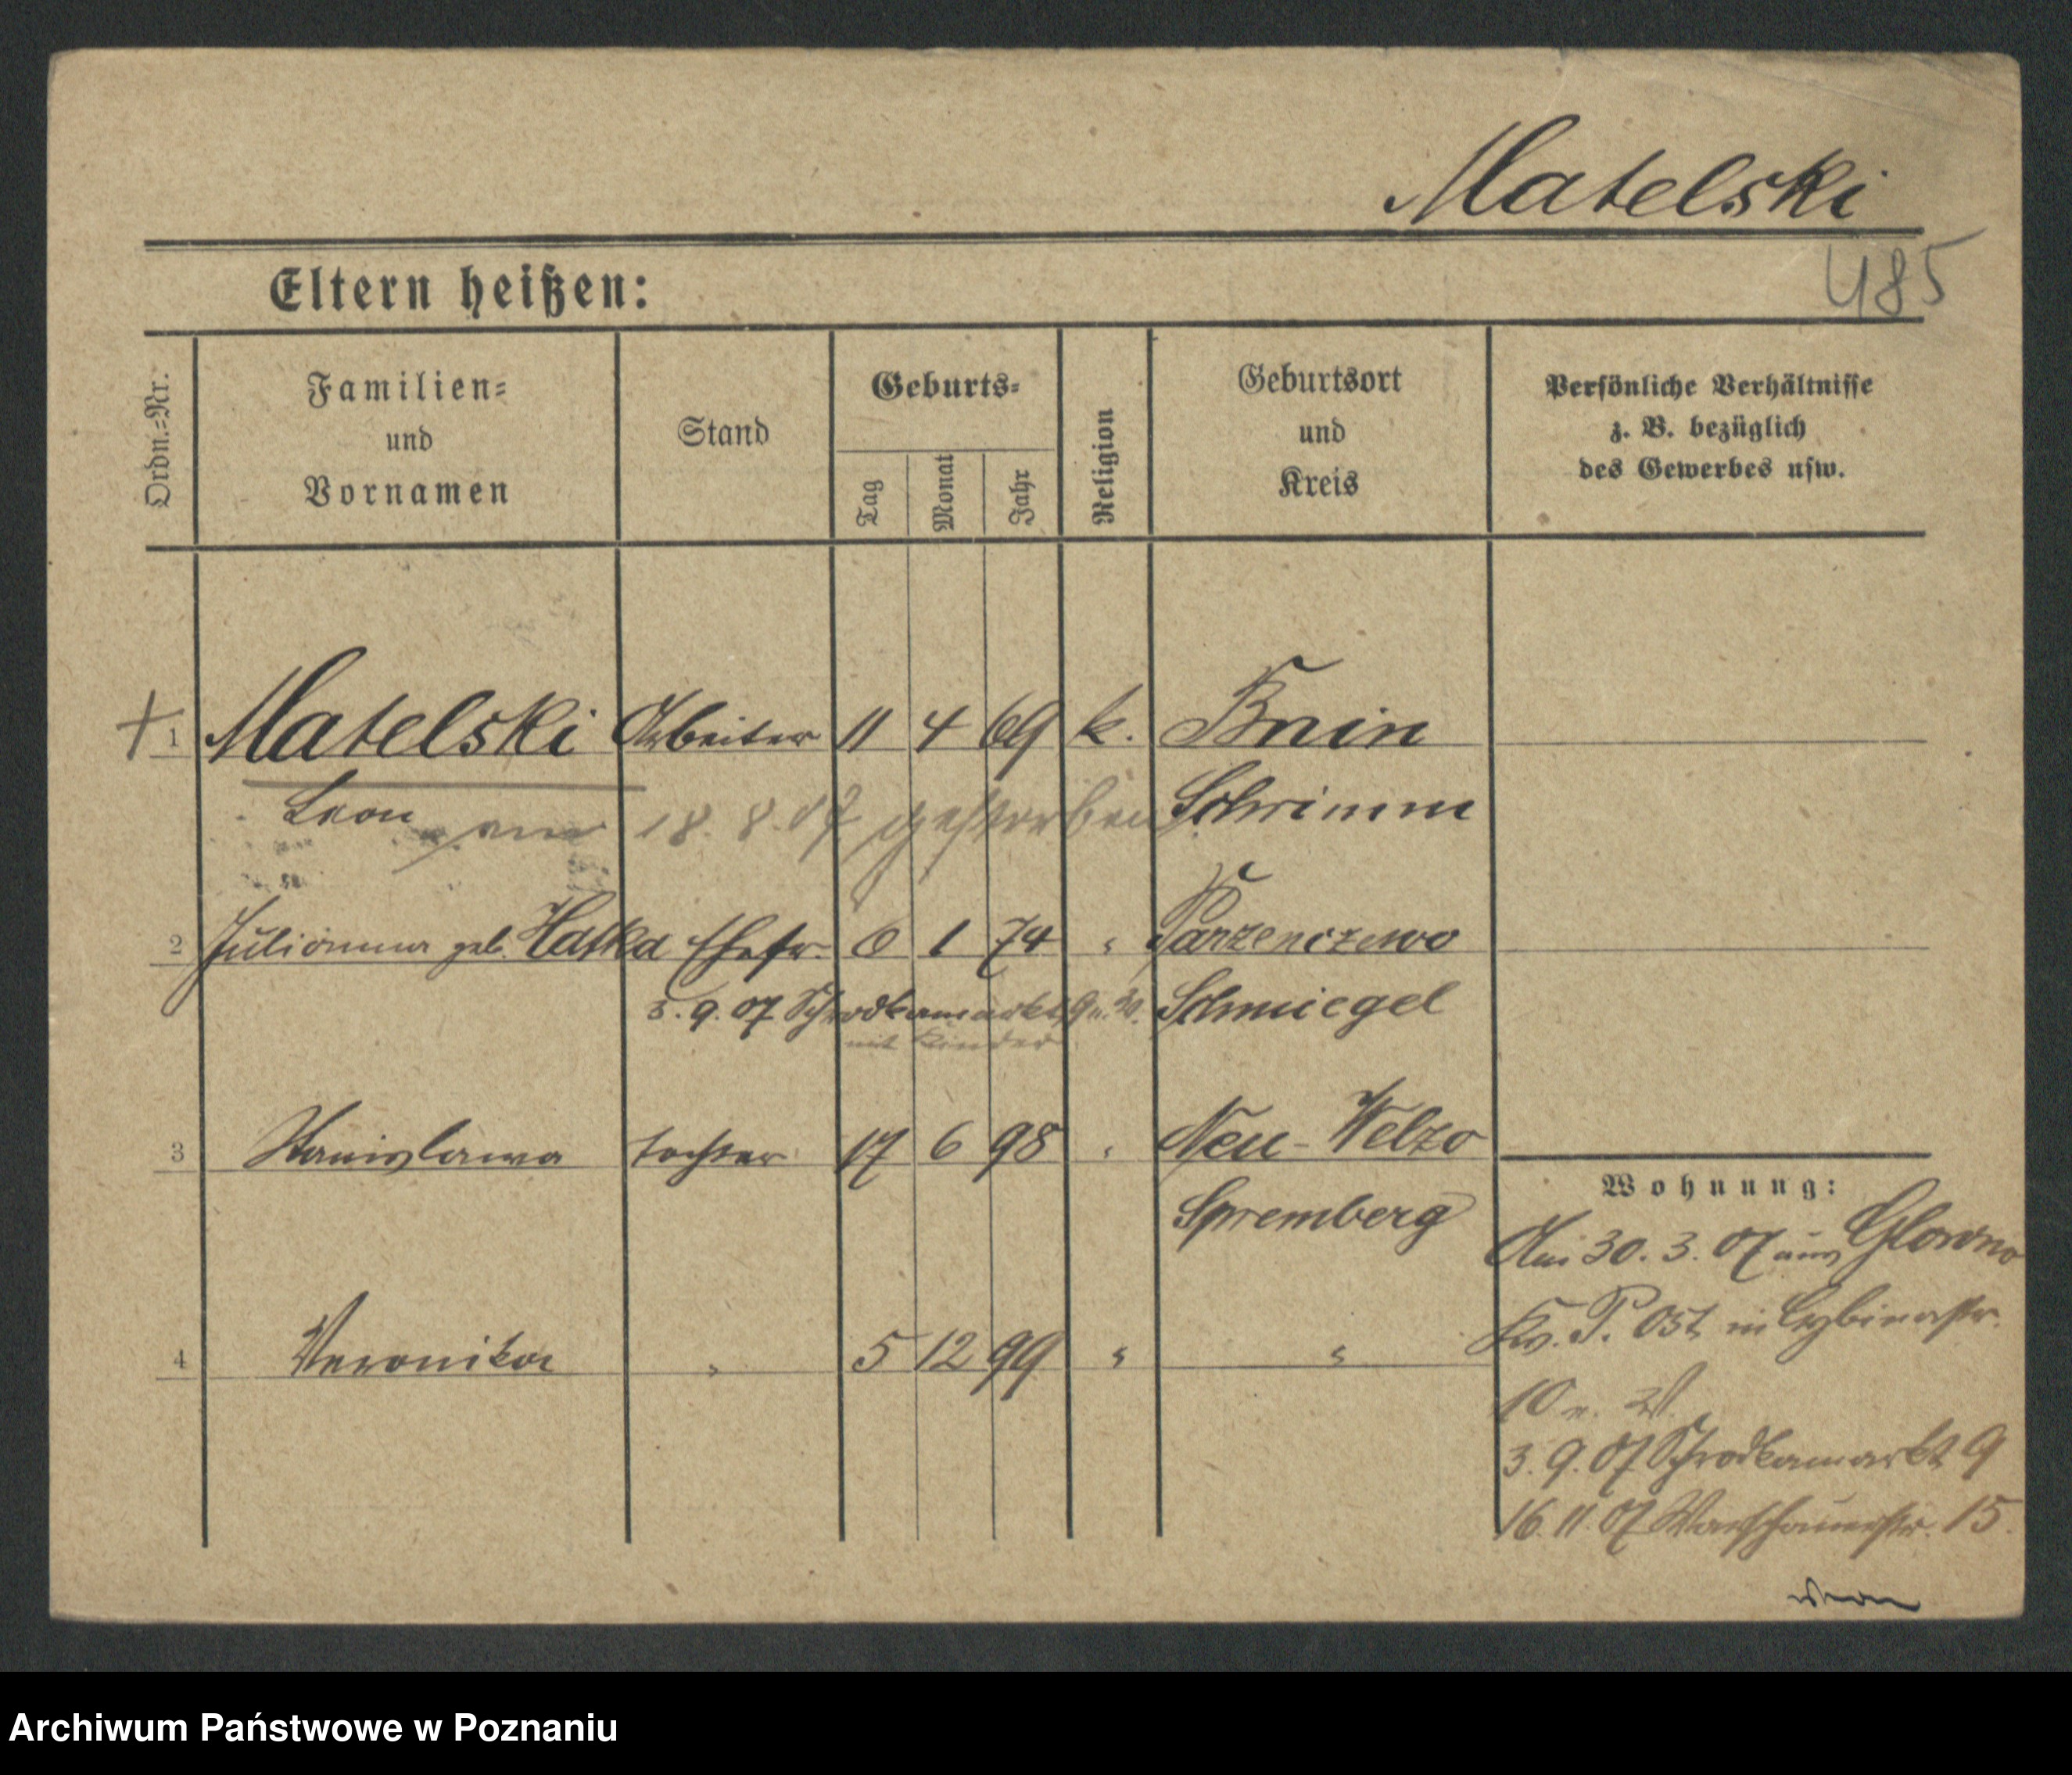 Matelski
485
Eltern heißen:
Ordn.-Nr.
Familien-
und
Vornamen
Stand
Geburts-
Tag
Monat
Jahr
Religion
Geburtsort
und
Kreis
Persönliche Verhältnisse
z. B. bezüglich
des Gewerbes usw.
+ 1 Matelski Arbeiter 11 4 69 k. Bnin
Leon am 18.8.07 gestorben Schrimm
2 Julianna geb. Hatka Ehefr. 6 1 74 " Parzenczewo
3.9.07 Schrodkamarkt 9 n. W. Schmiegel
mit Kinder
3 Stanislawa Tochter 17 6 98 " Neu-Welzo
Spremberg
4 Veronika " 5 12 99 " "
Wohnung:
Am 30.3.07 aus Glowno
Kr. P. Ost in Cybinastr.
10 n. W.
3.9.07 Schrodkamarkt 9
16.11.07 Warschauerstr. 15.
Archiwum Państwowe w Poznaniu